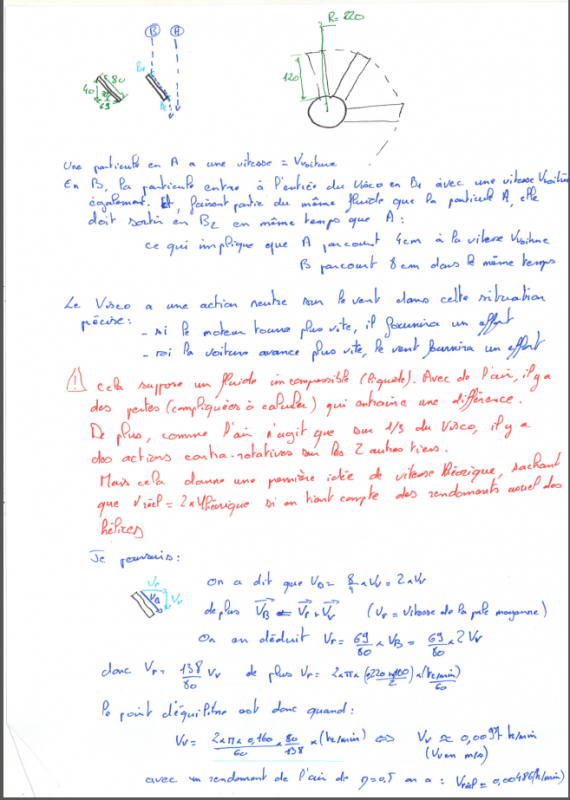 R= 220
B A
B1
80
40
69
B2
120
Une particule en A a une vitesse = Vvoiture
En B, la particule entre à l'entrée du Visco en B1 avec une vitesse Vvoiture
également. Et, faisant partie du même fluide que la particule A, elle
doit sortir en B2 en même temps que A :
ce qui implique que A parcourt 4cm à la vitesse Vvoiture
B parcourt 8cm dans le même temps
Le Visco a une action neutre sur le vent dans cette situation
précise :
- si le moteur tourne plus vite, il fournira un effort
- si la voiture avance plus vite, le vent fournira un effort
! Cela suppose un fluide incompressible (liquide). Avec de l'air, il y a
des pertes (compliquées à calculer) qui entraine une différence.
De plus, comme l'air n'agit que sur 1/3 du Visco, il y a
des actions contra-rotatives sur les 2 autres tiers.
Mais cela donne une première idée de vitesse théorique, sachant
que Vréel = 2 x Vthéorique si on tient compte des rendements usuel des
hélices
Je poursuis :
Vr
VB Vv
On a dit que VB = 8/4 x Vv = 2 x Vv
de plus VB = Vr + Vv (Vr = Vitesse de la pale moyenne)
On en déduit Vr = 69/80 x VB = 69/80 x 2Vv
donc Vr = 138/80 Vv de plus Vr = 2 x π x x (tr/min)/60
Le point d'équilibre est donc quand :
Vv = 2 x π x 0,160/60 x 80/138 x (tr/min) ⇔ Vv ≈ 0,0097 tr/min
(Vv en m/s)
avec un rendement de l'air de η=0,5 on a : Vréel = 0,00486(tr/min)